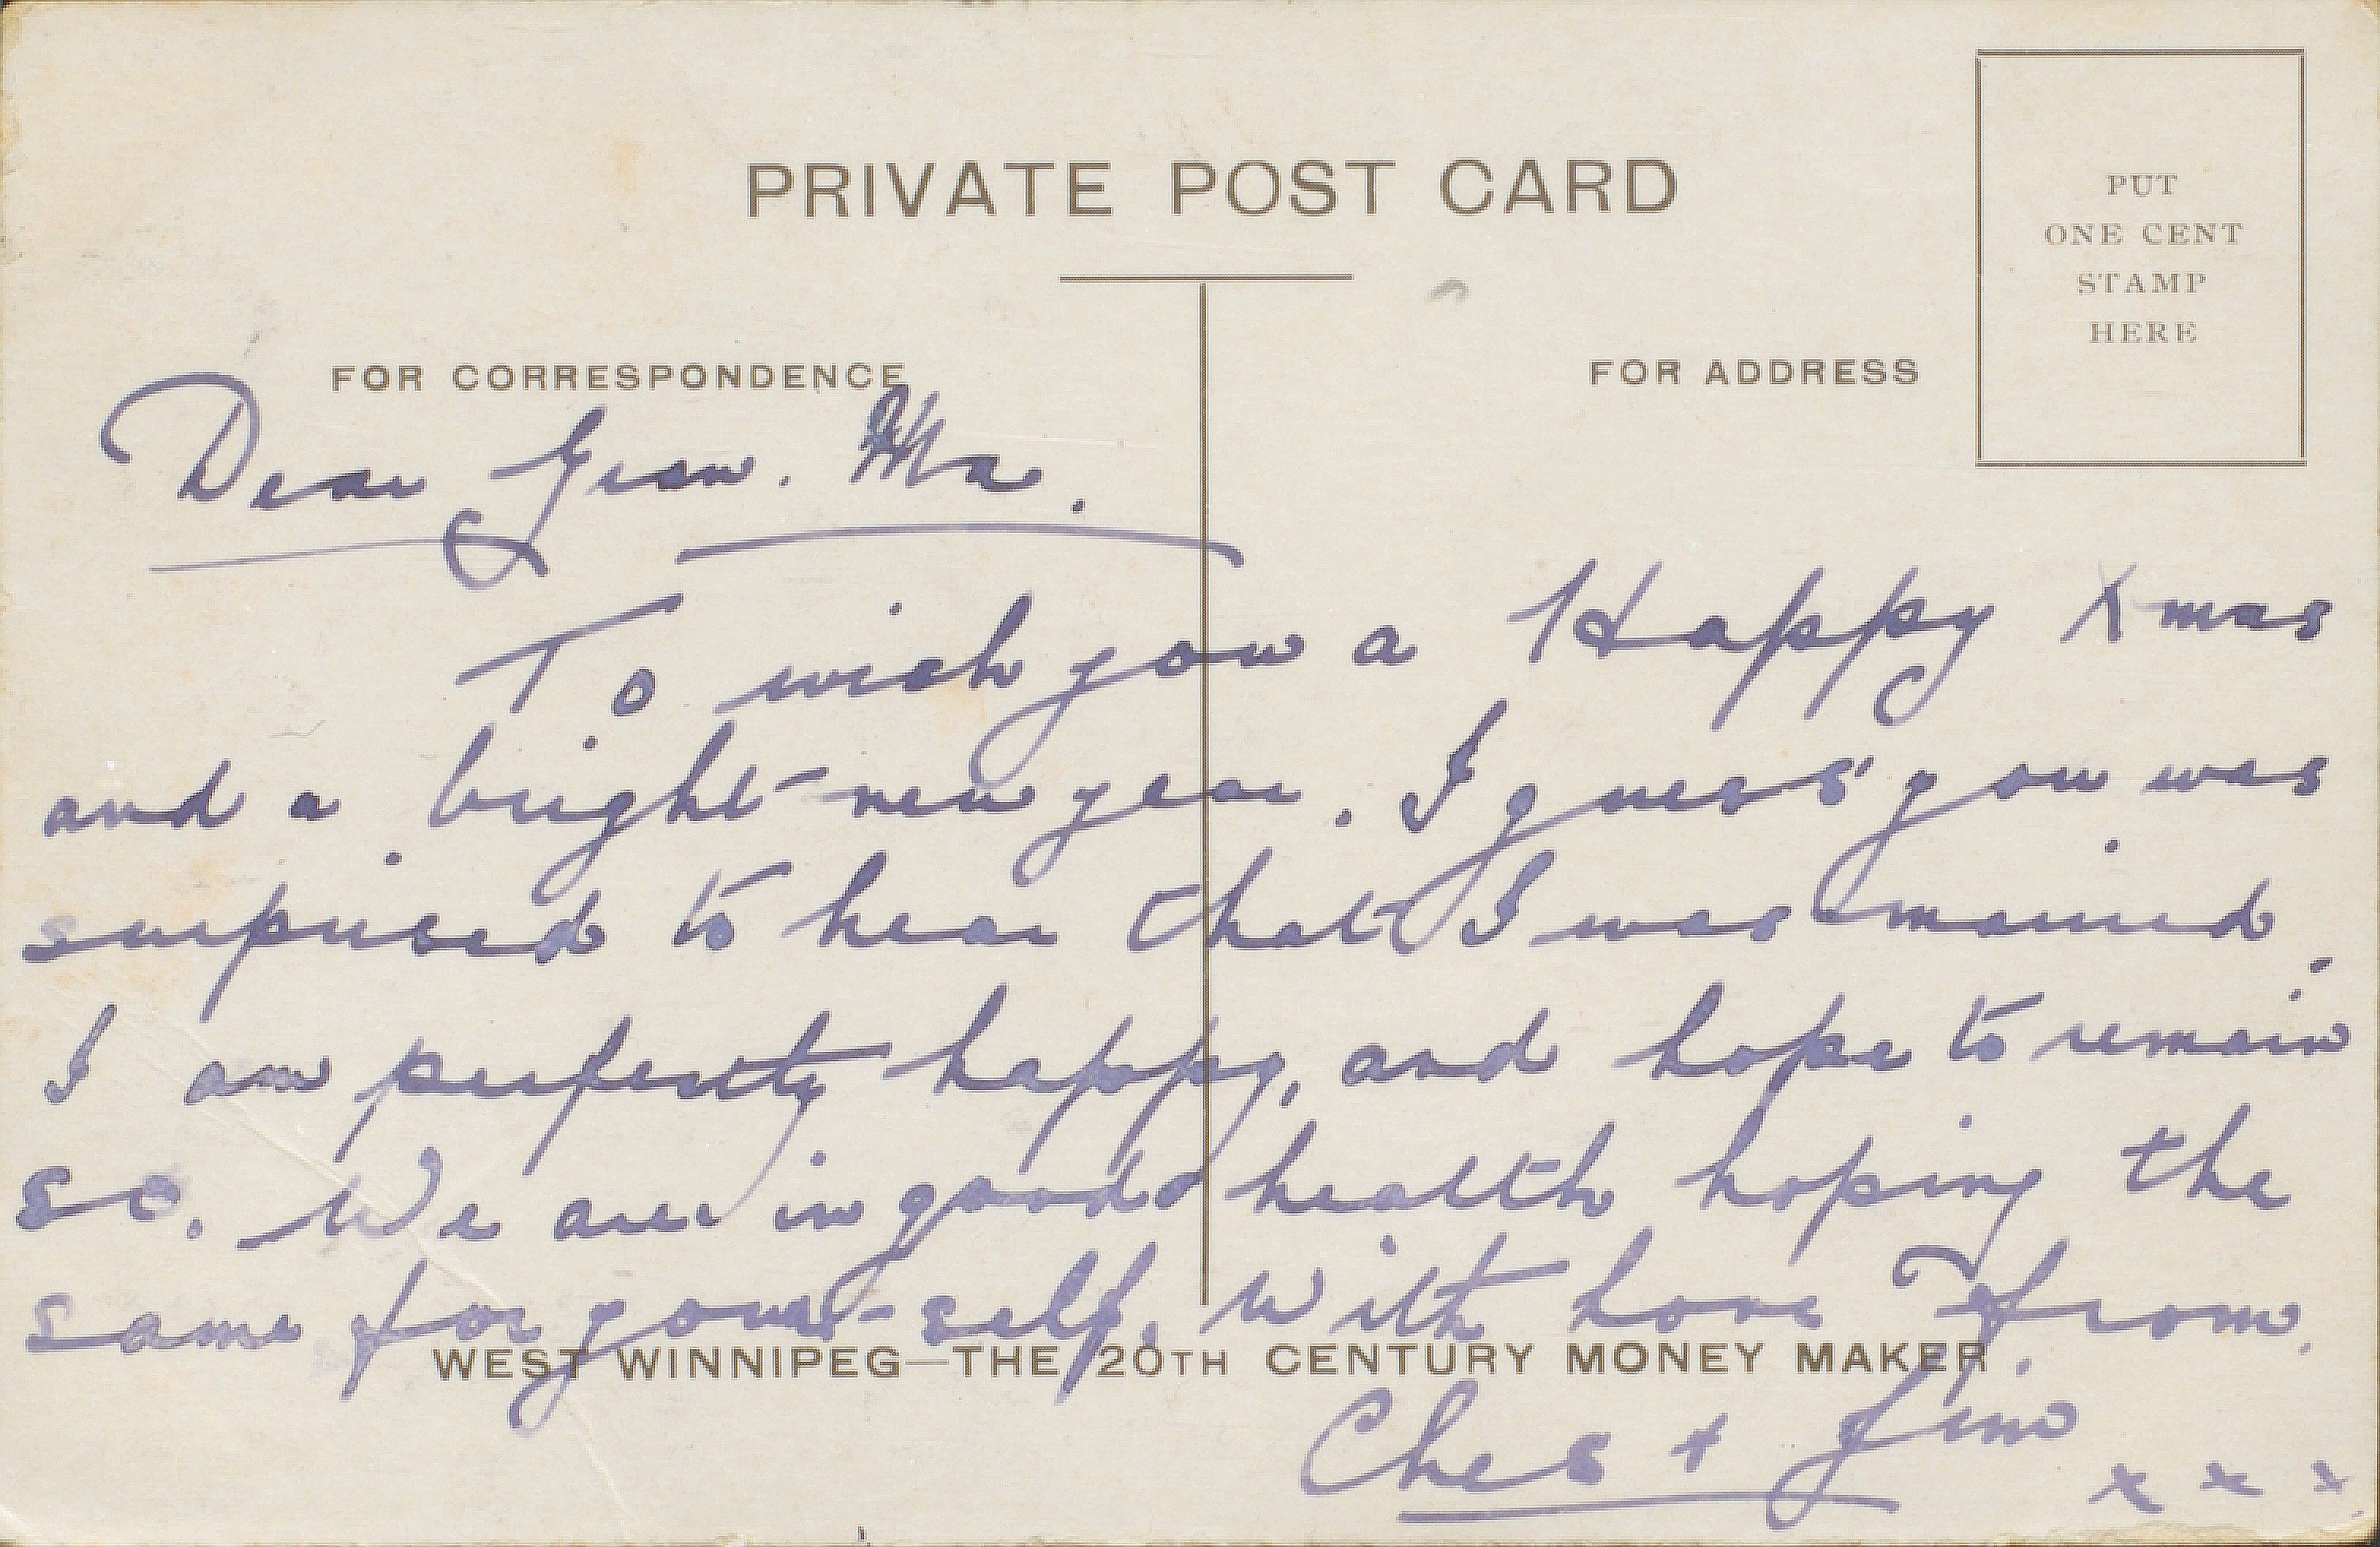 PRIVATE POST CARD
PUT
ONE CENT
STAMP
HERE
FOR CORRESPONDENCE
FOR ADDRESS
Dear Gran. Ma.
To wish you a Happy Xmas
and a bright new year. I guess you was
surprised to hear that I was married.
I am perfectly happy, and hope to remain
so. We are in good health hoping the
same for your-self. With love from.
WEST WINNIPEG—THE 20TH CENTURY MONEY MAKER
Ches + Jim
x x x